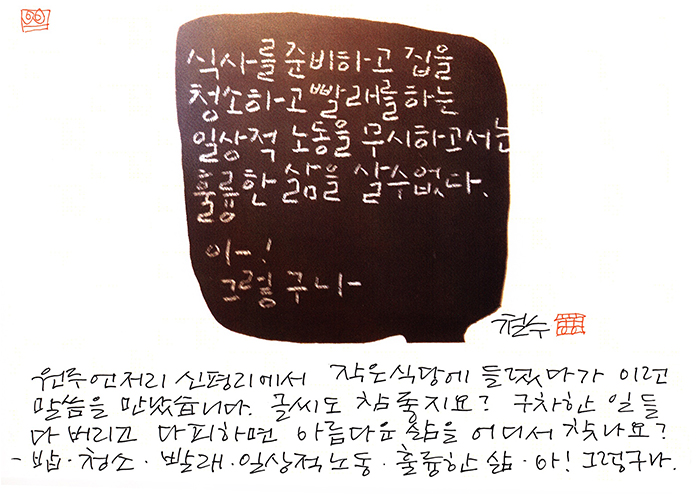 식사를 준비하고 집을
청소하고 빨래를 하는
일상적 노동을 무시하고서는
훌륭한 삶을 살수없다.
아-!
그렇구나-
철수
원주언저리 신평리에서 작은식당에 들렀다가 이런
말씀을 만났습니다. 글씨도 참 좋지요? 구차한 일들
다 버리고 다 피하면 아름다운 삶을 어디서 찾나요?
- 밥·청소·빨래·일상적노동·훌륭한 삶·아! 그렇구나.